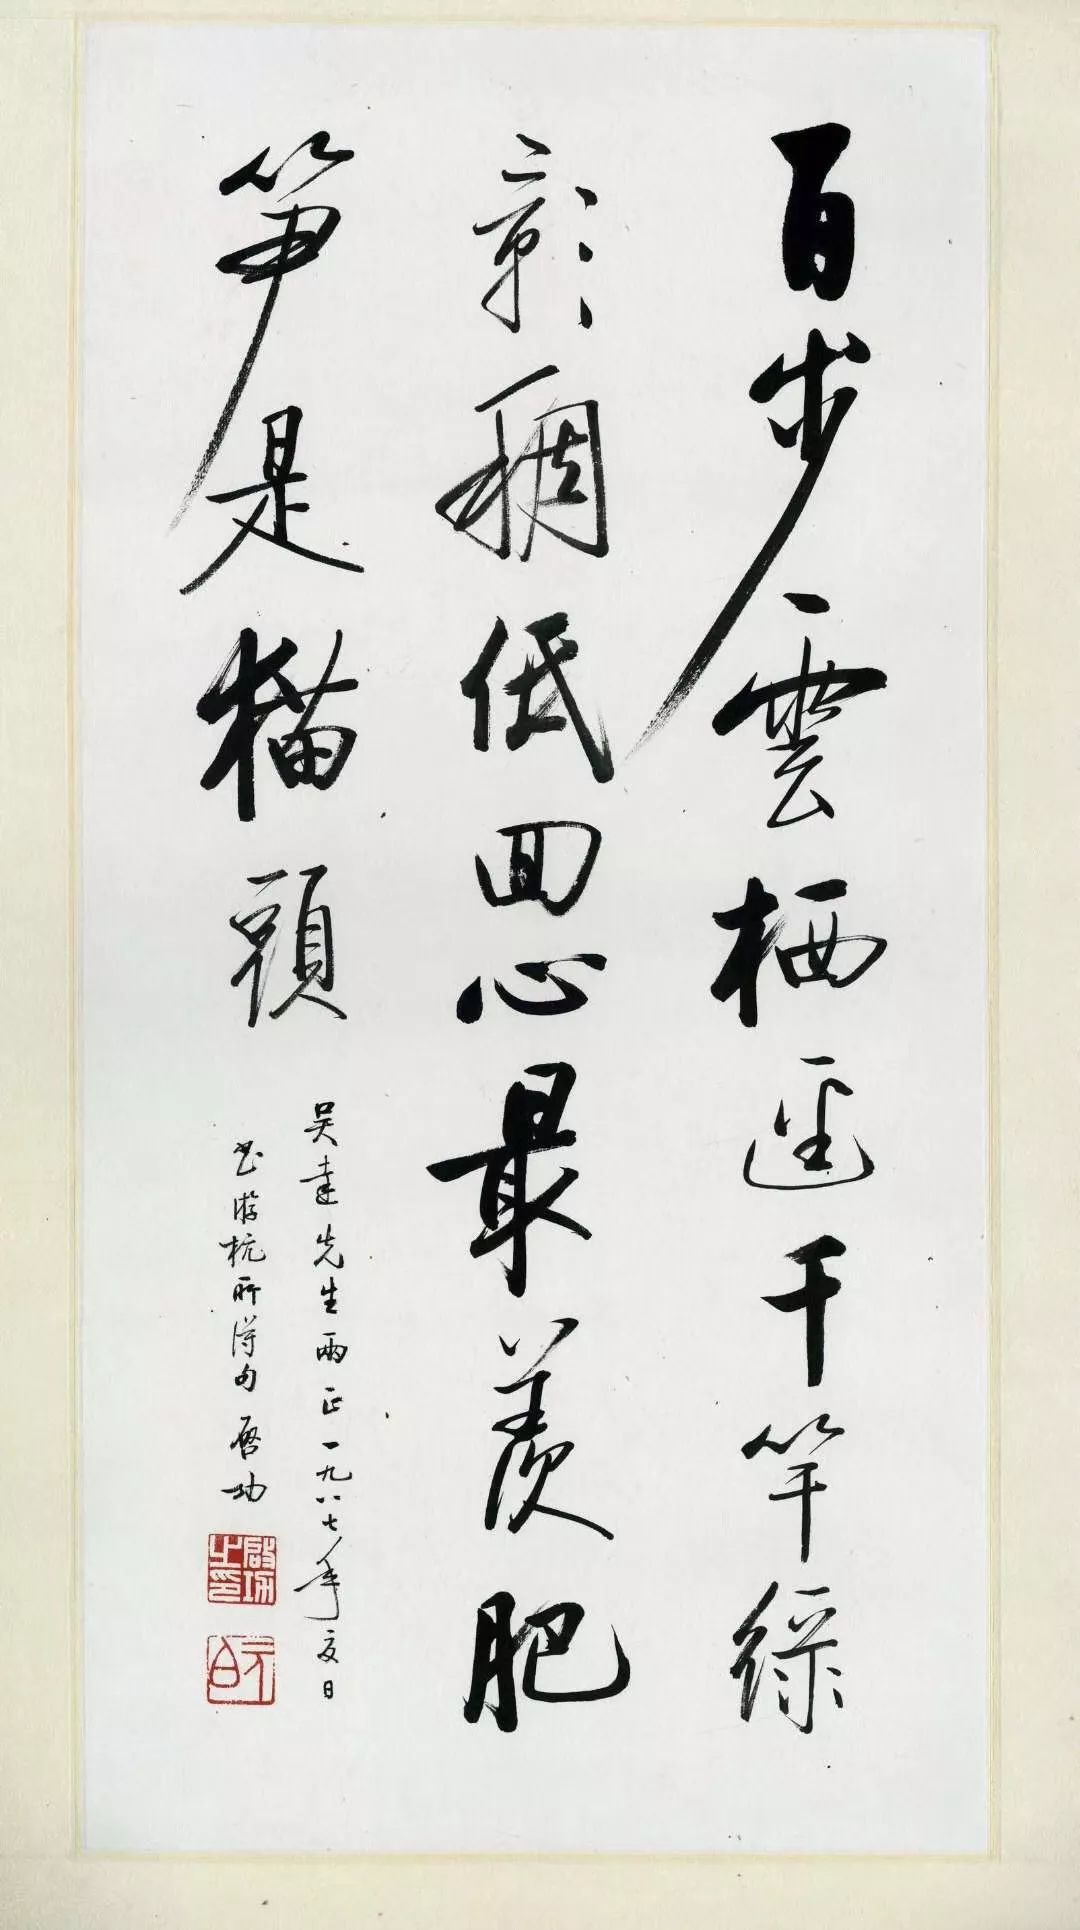 百步雲栖逕千竿綠
影稠低回心最羨肥
笋是猫頭
吴達先生兩正一九八七年夏日
書游杭所得句啓功
啟功之印
元白